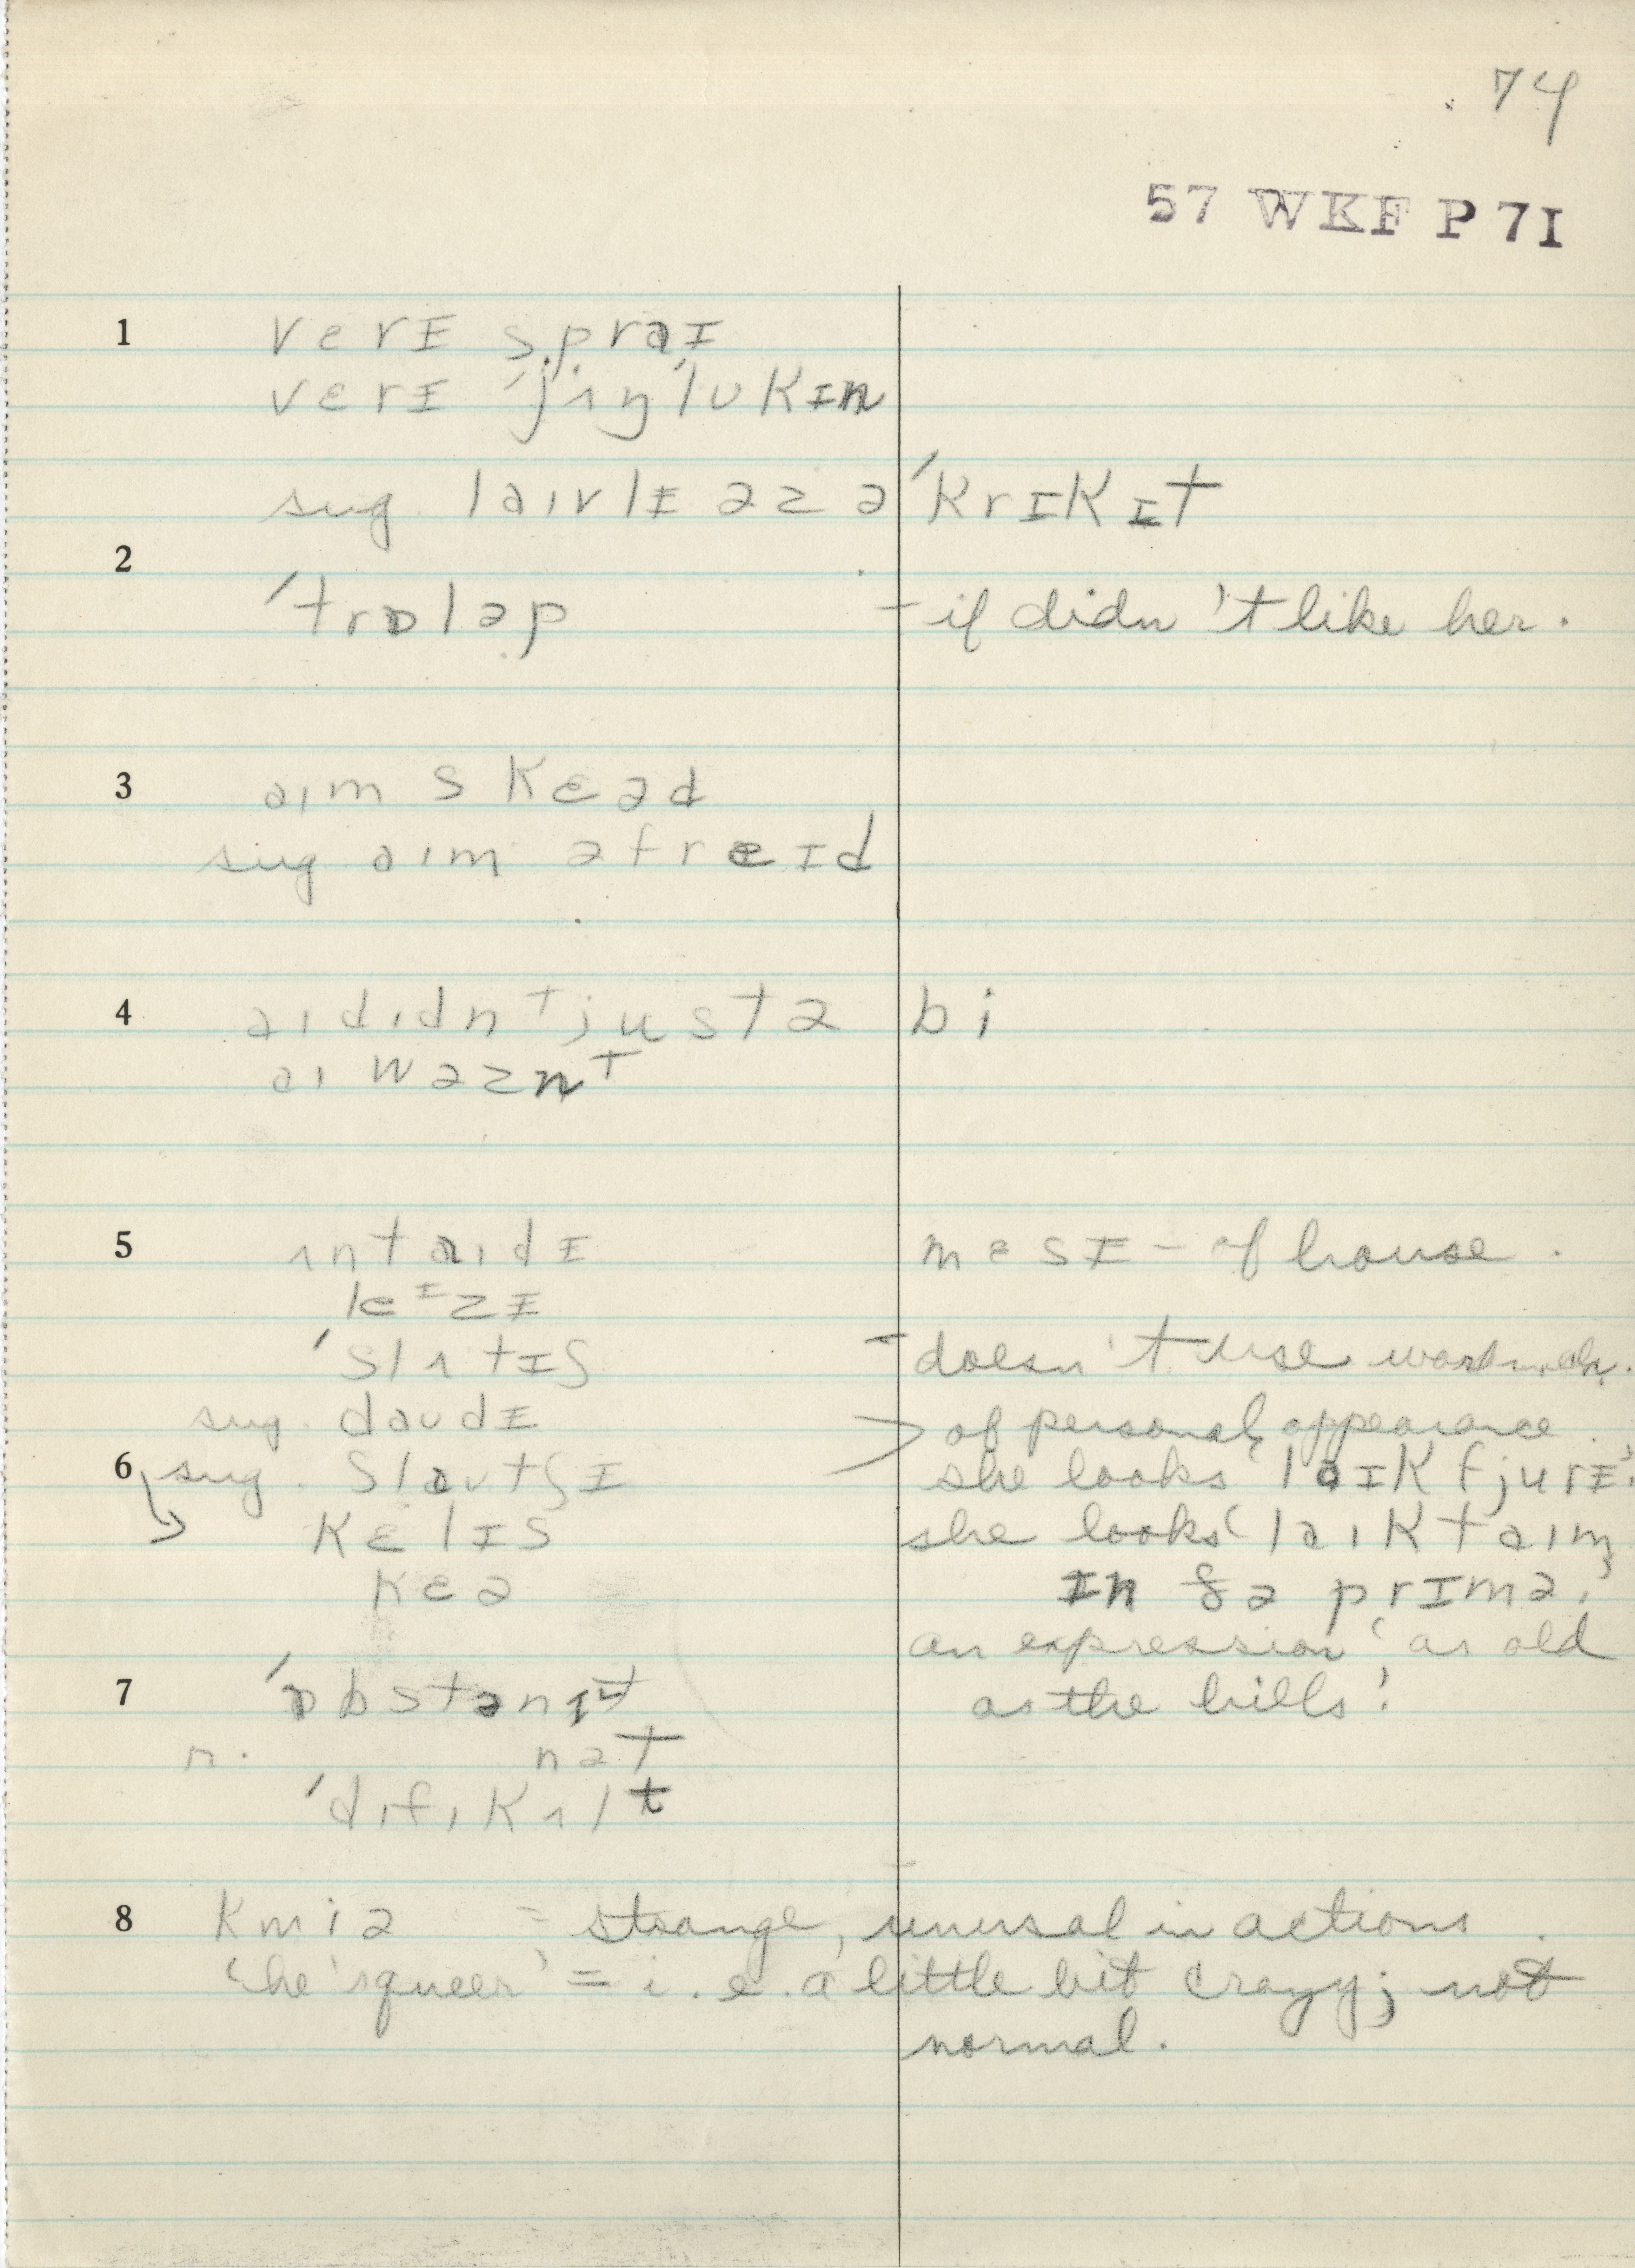 74
57 WKF P 7I
1 vɛrɪ spraɪ
vɛrɪ 'jʌŋ'lʊkɪn
sug. laɪvlɪ əz ə 'krɪkɪt
2
'trɒləp – if didn't like her.
3 aɪm skɛəd
sug aɪm əfreɪd
4 aɪ dɪdnᵗ justə bi
aɪ wəznᵗ
5 ʌntaɪdɪ mɛsɪ – of house.
leᶦzɪ
'slʌtɪʃ – doesn't use word much.
sug. daudɪ > of personal appearance.
6 sug. slautʃɪ she looks 'laɪk fjurɪ'.
kɛlɪs she looks 'laɪk taɪm
kɛə ɪn ðə prɪmə'.
an expression 'as old
7 'ɒbstənɪt as the hills'.
r. nət
'dɪfɪkʌlt
8 kwiə = strange, unusal in actions.
'he's queer' = i.e. a little bit crazy; not
normal.